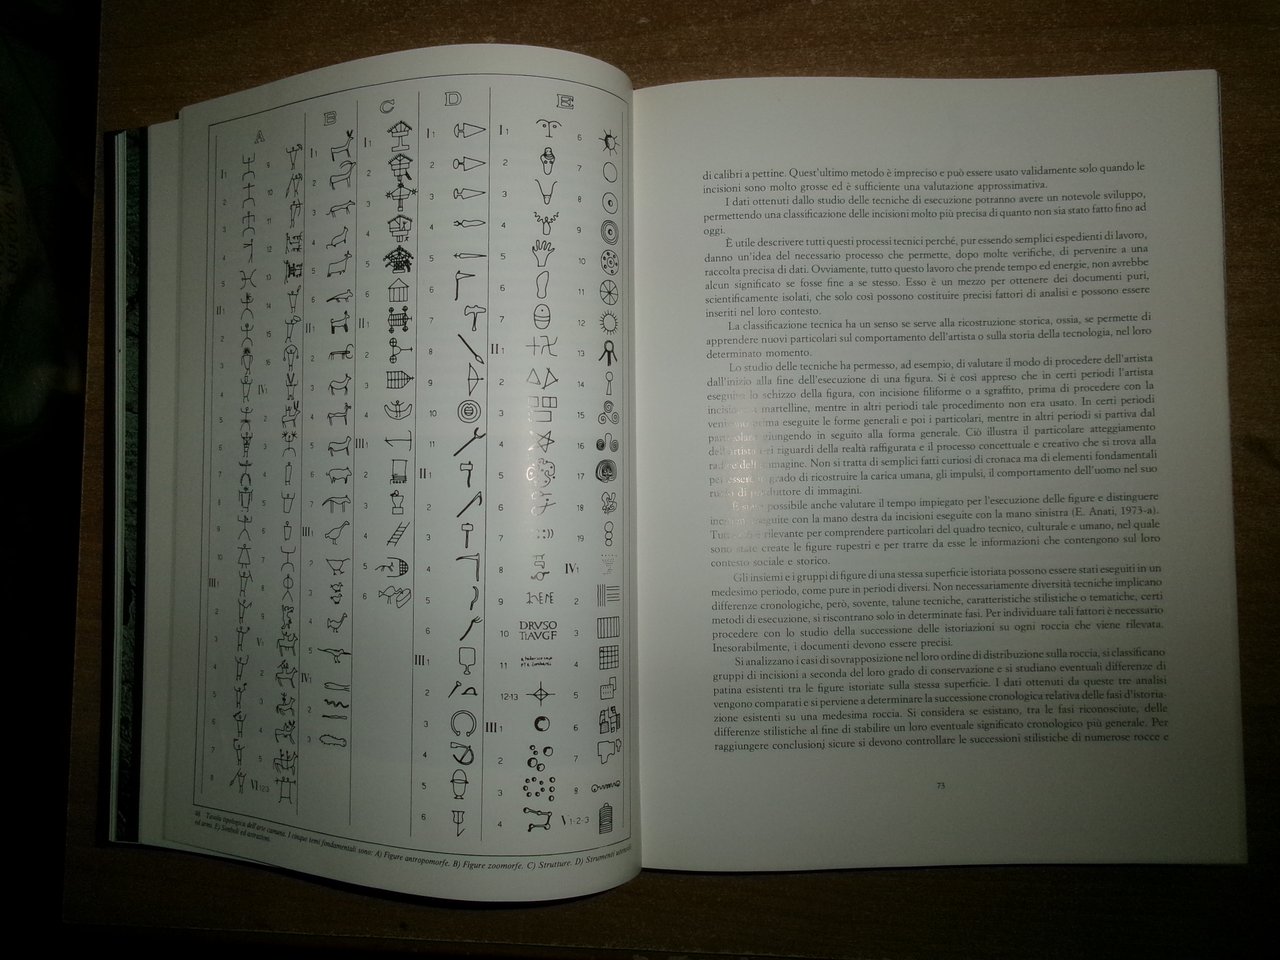 A
B
C
D
E
DRVSO
TIAVGF
48 Tavola tipologica dell'arte camuna. I cinque temi fondamentali sono: A) Figure antropomorfe. B) Figure zoomorfe. C) Strutture. D) Strumenti
ed armi. E) Simboli ed astrazioni.
di calibri a pettine. Quest'ultimo metodo è impreciso e può essere usato validamente solo quando le
incisioni sono molto grosse ed è sufficiente una valutazione approssimativa.
I dati ottenuti dallo studio delle tecniche di esecuzione potranno avere un notevole sviluppo,
permettendo una classificazione delle incisioni molto più precisa di quanto non sia stato fatto fino ad
oggi.
È utile descrivere tutti questi processi tecnici perché, pur essendo semplici espedienti di lavoro,
danno un'idea del necessario processo che permette, dopo molte verifiche, di pervenire a una
raccolta precisa di dati. Ovviamente, tutto questo lavoro che prende tempo ed energie, non avrebbe
alcun significato se fosse fine a se stesso. Esso è un mezzo per ottenere dei documenti puri,
scientificamente isolati, che solo così possono costituire precisi fattori di analisi e possono essere
inseriti nel loro contesto.
La classificazione tecnica ha un senso se serve alla ricostruzione storica, ossia, se permette di
apprendere nuovi particolari sul comportamento dell'artista o sulla storia della tecnologia, nel loro
determinato momento.
Lo studio delle tecniche ha permesso, ad esempio, di valutare il modo di procedere dell'artista
dall'inizio alla fine dell'esecuzione di una figura. Si è così appreso che in certi periodi l'artista
lo schizzo della figura, con incisione filiforme o a sgraffito, prima di procedere con la
martelline, mentre in altri periodi tale procedimento non era usato. In certi periodi
prima eseguite le forme generali e poi i particolari, mentre in altri periodi si partiva dal
particolare giungendo in seguito alla forma generale. Ciò illustra il particolare atteggiamento
dell'artista nei riguardi della realtà raffigurata e il processo concettuale e creativo che si trova alla
immagine. Non si tratta di semplici fatti curiosi di cronaca ma di elementi fondamentali
per essere in grado di ricostruire la carica umana, gli impulsi, il comportamento dell'uomo nel suo
ruolo di produttore di immagini.
possibile anche valutare il tempo impiegato per l'esecuzione delle figure e distinguere
eseguite con la mano destra da incisioni eseguite con la mano sinistra (E. Anati, 1973-a).
rilevante per comprendere particolari del quadro tecnico, culturale e umano, nel quale
sono state create le figure rupestri e per trarre da esse le informazioni che contengono sul loro
contesto sociale e storico.
Gli insiemi e i gruppi di figure di una stessa superficie istoriata possono essere stati eseguiti in un
medesimo periodo, come pure in periodi diversi. Non necessariamente diversità tecniche implicano
differenze cronologiche, però, sovente, talune tecniche, caratteristiche stilistiche o tematiche, certi
metodi di esecuzione, si riscontrano solo in determinate fasi. Per individuare tali fattori è necessario
procedere con lo studio della successione delle istoriazioni su ogni roccia che viene rilevata.
Inesorabilmente, i documenti devono essere precisi.
Si analizzano i casi di sovrapposizione nel loro ordine di distribuzione sulla roccia, si classificano
gruppi di incisioni a seconda del loro grado di conservazione e si studiano eventuali differenze di
patina esistenti tra le figure istoriate sulla stessa superficie. I dati ottenuti da queste tre analisi
vengono comparati e si perviene a determinare la successione cronologica relativa delle fasi d'istoria-
zione esistenti su una medesima roccia. Si considera se esistano, tra le fasi riconosciute, delle
differenze stilistiche al fine di stabilire un loro eventuale significato cronologico più generale. Per
raggiungere conclusioni sicure si devono controllare le successioni stilistiche di numerose rocce e
73